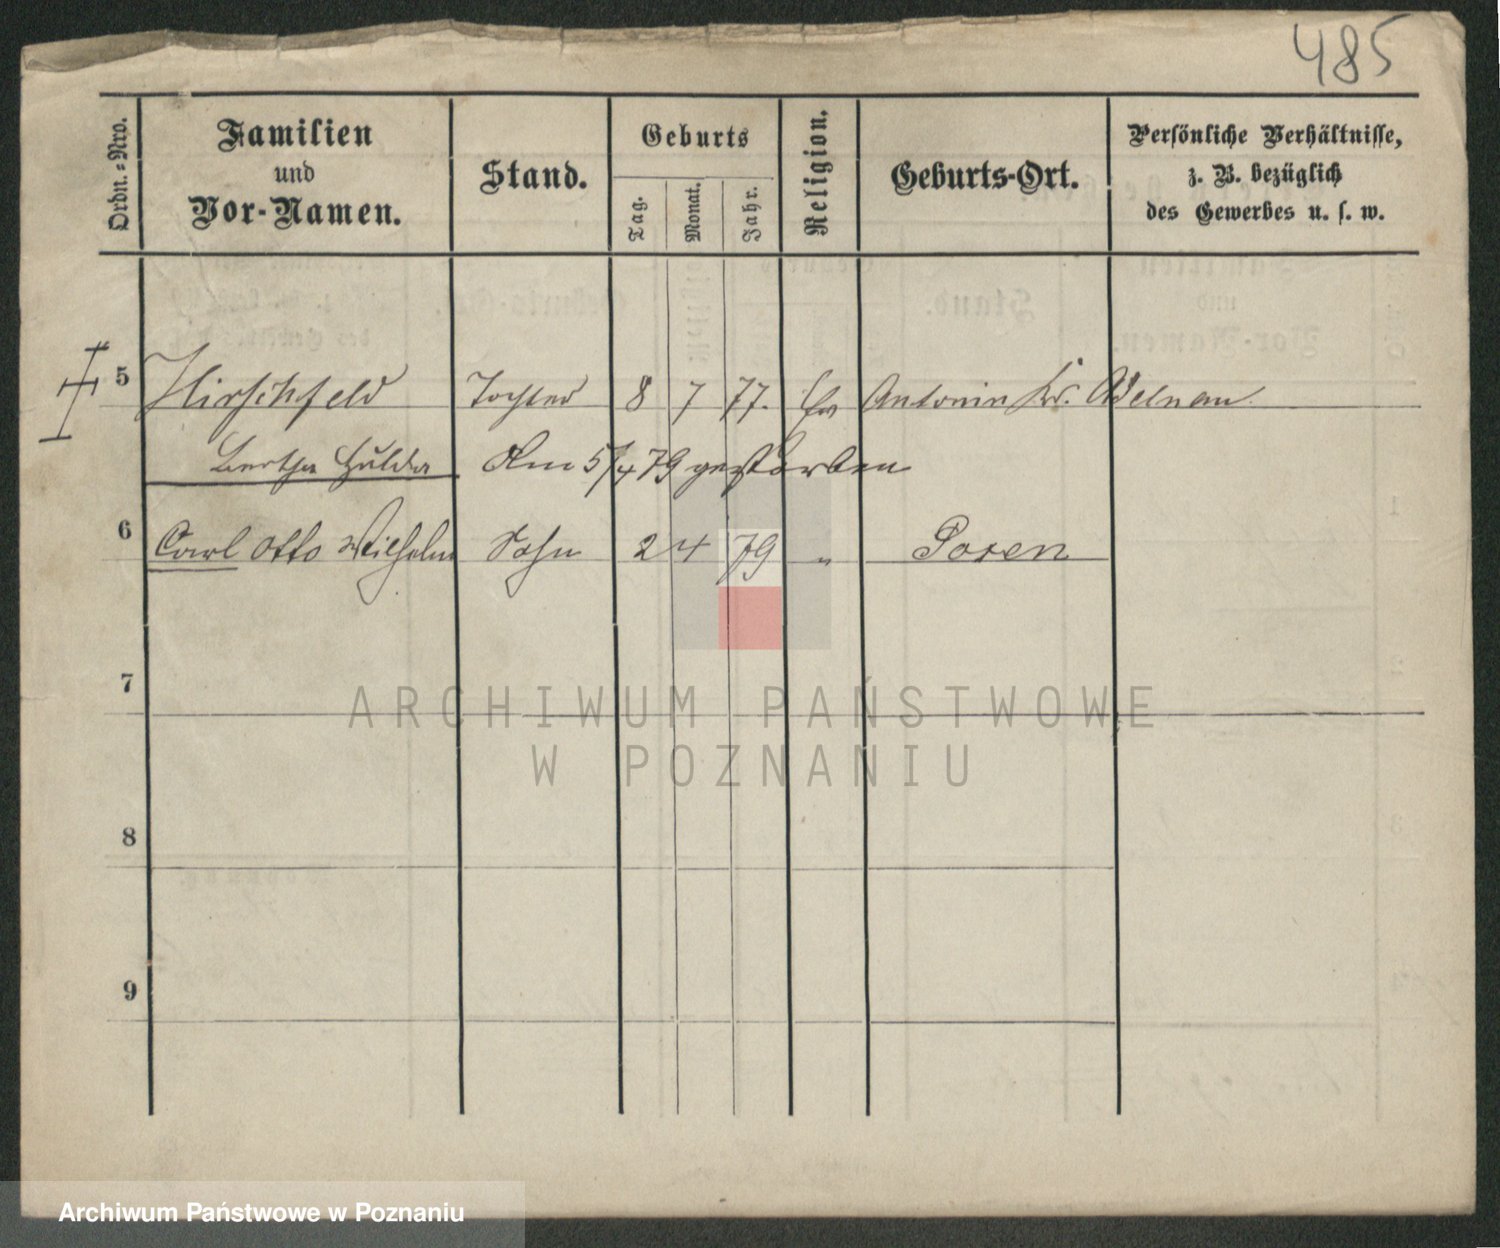 485
Ordn.-Nro.
Familien
und
Vor-Namen.
Stand.
Geburts
Tag.
Monat.
Jahr.
Religion.
Geburts-Ort.
Persönliche Verhältnisse,
z. B. bezüglich
des Gewerbes u. s. w.
5 Hirschfeld Tochter 8 7 77. ev Antonin Kr. Adelnau
Bertha Hulda Am 5/4 79 gestorben
6 Carl Otto Wilhelm Sohn 2 4 79 " Posen
7
8
9
ARCHIWUM PAŃSTWOWE
W POZNANIU
Archiwum Państwowe w Poznaniu